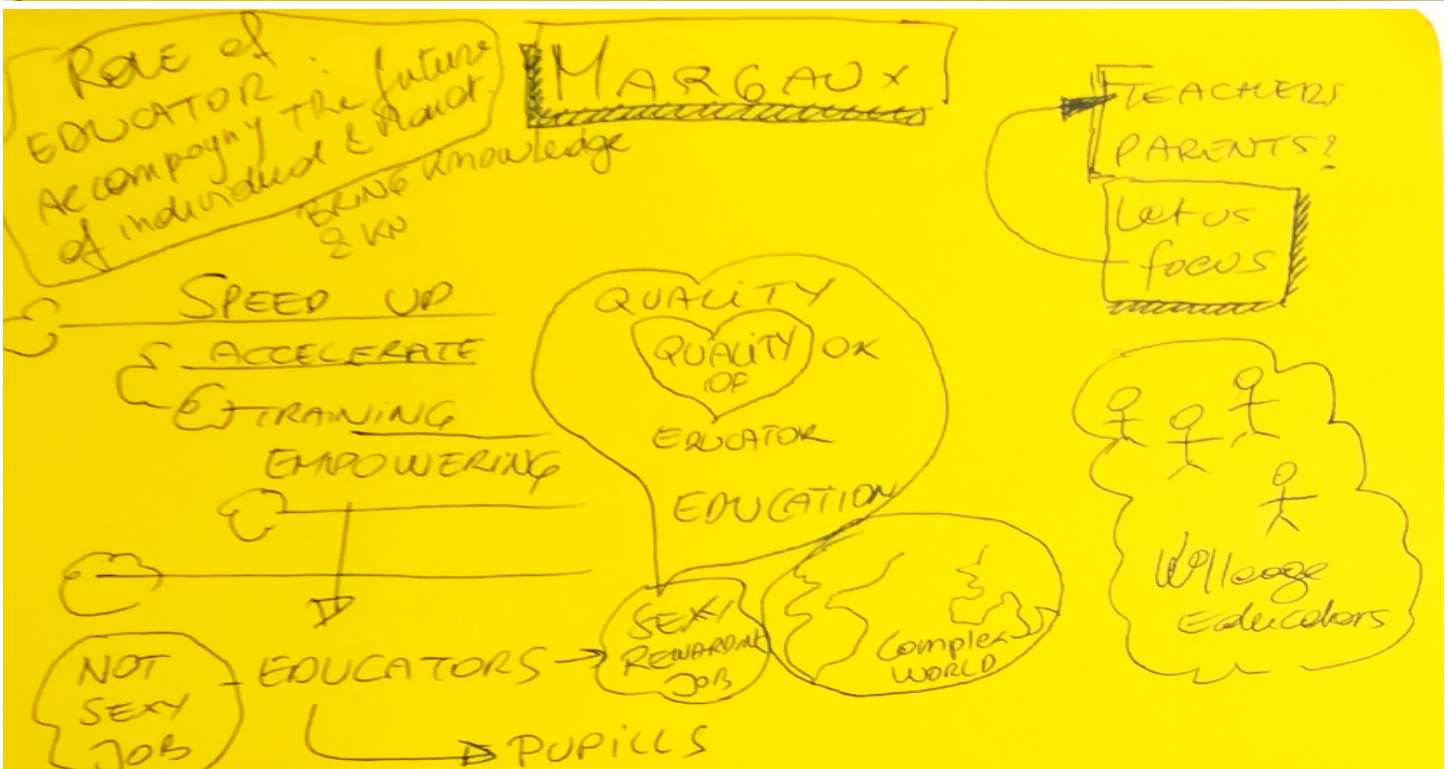 ROLE of
EDUCATOR :
Accompagny the future
of individual &
BRING Knowledge
& KN
MARGAUX
TEACHERS
PARENTS?
Let us
focus
SPEED UP
ACCELERATE
TRAINING
EMPOWERING
QUALITY
QUALITY OK
OF
EDUCATOR
EDUCATION
NOT
SEXY
JOB
EDUCATORS
SEXY
REWARDING
JOB
Complex
WORLD
Educators
PUPILLS